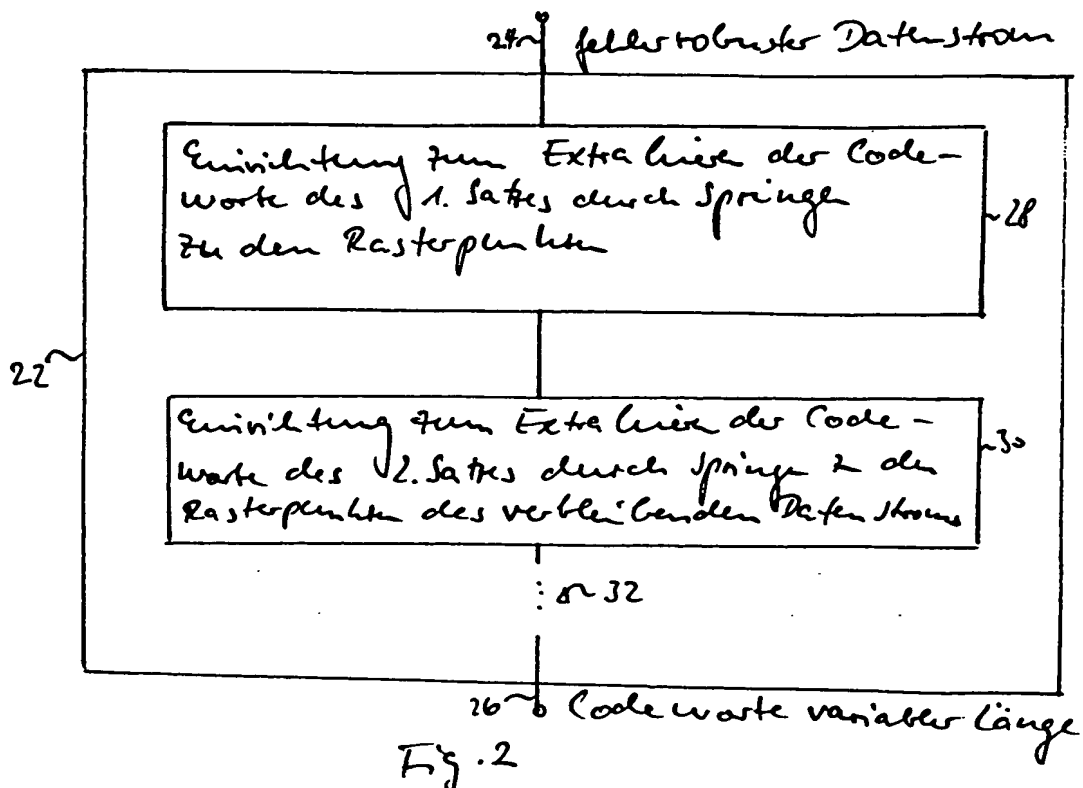 24 fehlerrobuster Datenstrom
Einrichtung zum Extrahieren der Code-
worte des 1. Satzes durch Springen
zu den Rasterpunkten
28
22
Einrichtung zum Extrahieren der Code-
worte des 2. Satzes durch Springen zu den
Rasterpunkten des verbleibenden Datenstroms
30
32
26 Codeworte variabler Länge
Fig. 2